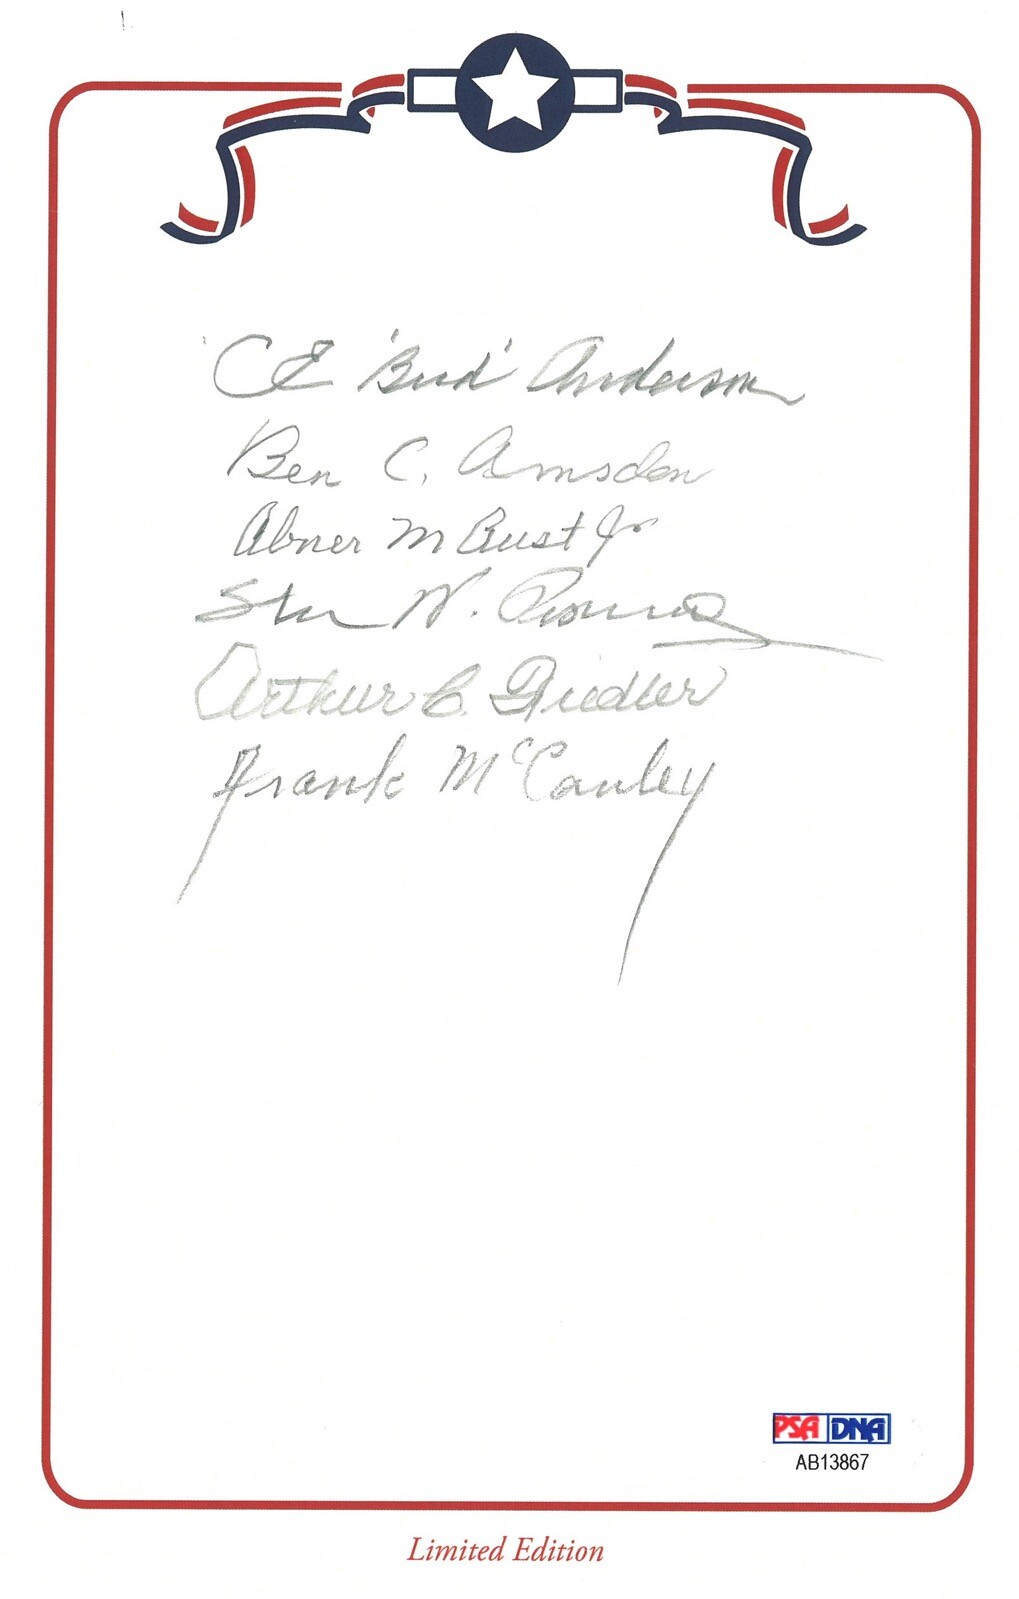 CE "Bud" Anderson
Ben C. Amsden
Abner M Aust Jr
Stan N.
Arthur C. Fiedler
Frank McCauley
PSA DNA
AB13867
Limited Edition